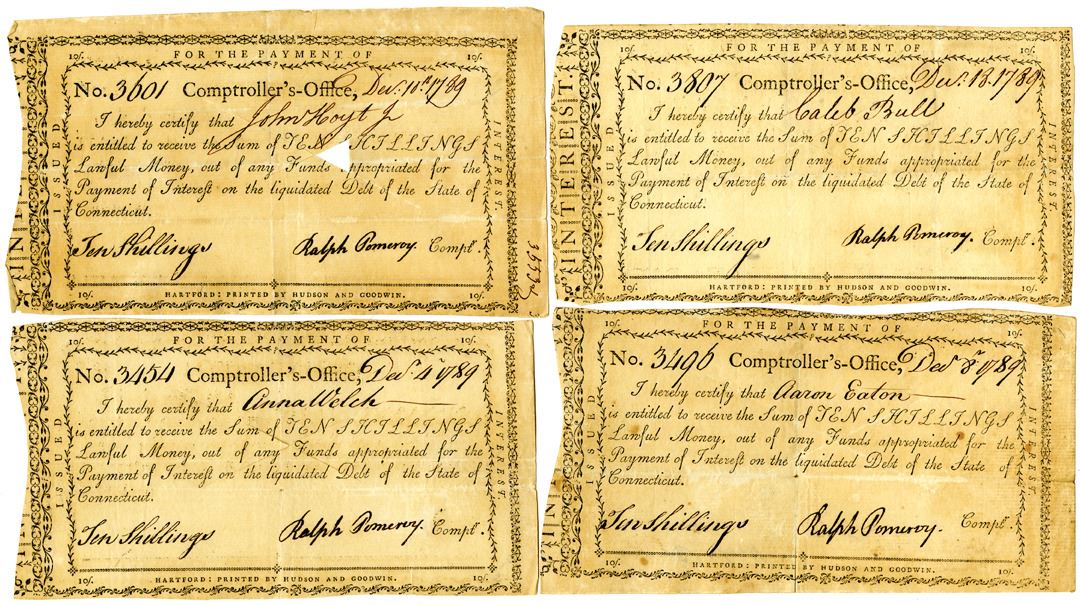 FOR THE PAYMENT OF
10/. 10/.
No. 3601 Comptroller's-Office, Decr. 10th 1789
I hereby certify that John Hoyt Jr
is entitled to receive the Sum of TEN SHILLINGS
Lawful Money, out of any Funds appropriated for the
Payment of Interest on the liquidated Debt of the State of
Connecticut.
Ten Shillings Ralph Pomeroy. Comptr.
10/. 10/.
HARTFORD: PRINTED BY HUDSON AND GOODWIN.
ISSUED
INTEREST.
FOR THE PAYMENT OF
10/. 10/.
No. 3807 Comptroller's-Office, Decr. 18. 1789
I hereby certify that Caleb Bull
is entitled to receive the Sum of TEN SHILLINGS
Lawful Money, out of any Funds appropriated for the
Payment of Interest on the liquidated Debt of the State of
Connecticut.
Ten Shillings Ralph Pomeroy. Comptr.
10/. 10/.
HARTFORD: PRINTED BY HUDSON AND GOODWIN.
INTEREST.
ISSUED
INTEREST.
FOR THE PAYMENT OF
10/. 10/.
No. 3454 Comptroller's-Office, Decr 4th 1789
I hereby certify that Anna Welch
is entitled to receive the Sum of TEN SHILLINGS
Lawful Money, out of any Funds appropriated for the
Payment of Interest on the liquidated Debt of the State of
Connecticut.
Ten Shillings Ralph Pomeroy. Comptr.
10/. 10/.
HARTFORD: PRINTED BY HUDSON AND GOODWIN.
ISSUED
INTEREST.
FOR THE PAYMENT OF
10/. 10/.
No. 3496 Comptroller's-Office, Decr 8th 1789
I hereby certify that Aaron Eaton
is entitled to receive the Sum of TEN SHILLINGS
Lawful Money, out of any Funds appropriated for the
Payment of Interest on the liquidated Debt of the State of
Connecticut.
Ten Shillings Ralph Pomeroy. Comptr.
10/. 10/.
HARTFORD: PRINTED BY HUDSON AND GOODWIN.
ISSUED
INTEREST.